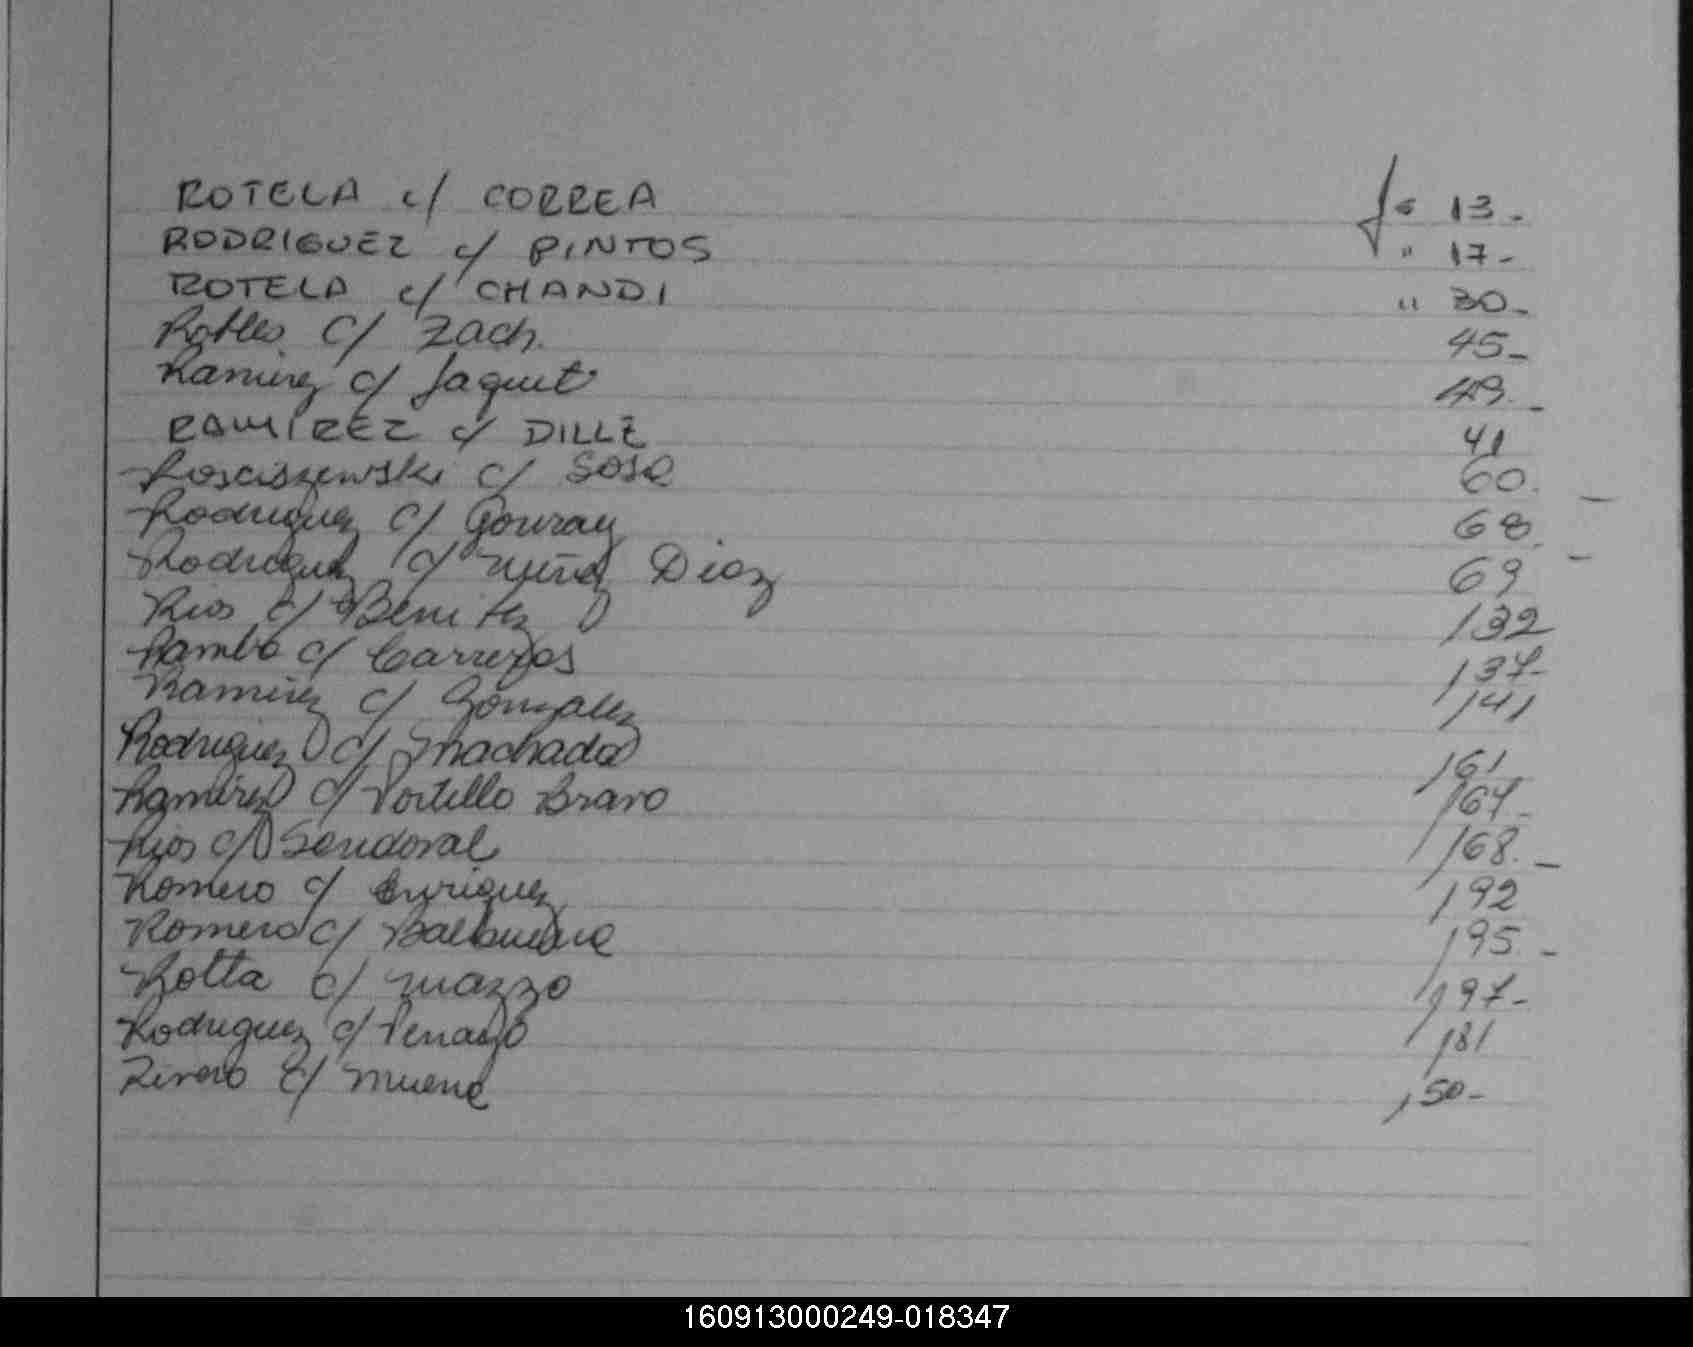 ROTELA c/ CORREA fs 13.-
RODRIGUEZ c/ PINTOS " 17-
ROTELA c/ CHANDI " 30-
Robles c/ Zach. 45-
Ramirez c/ Jaquet 49.-
RAMIREZ c/ DILLE 41
Rosciszewski c/ Sosa 60.-
Rodriguez c/ Gouray 68.-
Rodriguez c/ Nuñez Diaz 69
Rios c/ Benitez 132
Rambo c/ 137-
Ramirez c/ Gonzalez 141
Rodriguez c/ Machado 161
Ramirez c/ Portillo Bravo 164-
Rios c/ Sandoval 168.-
Romero c/ Enriquez 192
Romero c/ 195.-
Rotta c/ Mazzo 197-
Rodriguez c/ 181
Rivero c/ 50-
160913000249-018347